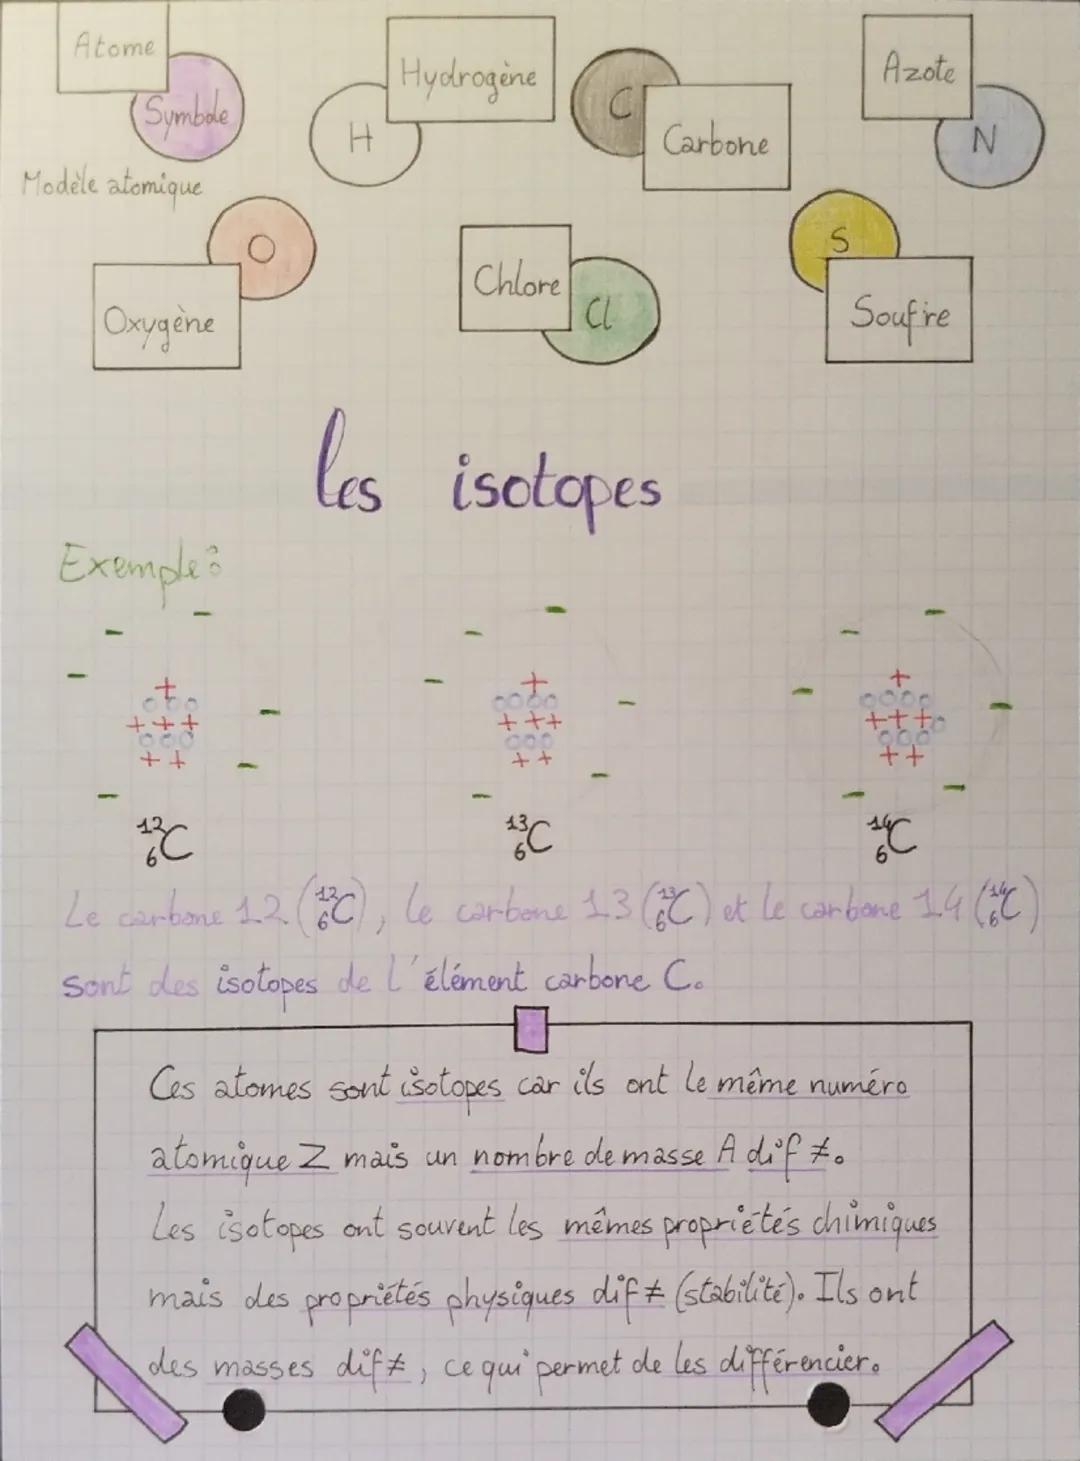 Atome
Symbole
Modèle atomique
Hydrogène
H
C
Carbone
Azote
N
O
Oxygène
Chlore
Cl
S
Soufre
les isotopes
Exemple :
12 6 C
13 6 C
14 6 C
Le carbone 12 (12 6 C), le carbone 13 (13 6 C) et le carbone 14 (14 6 C)
sont des isotopes de l'élément carbone C.
Ces atomes sont isotopes car ils ont le même numéro
atomique Z mais un nombre de masse A dif ≠.
Les isotopes ont souvent les mêmes propriétés chimiques
mais des propriétés physiques dif ≠ (stabilité). Ils ont
des masses dif ≠, ce qui permet de les différencier.